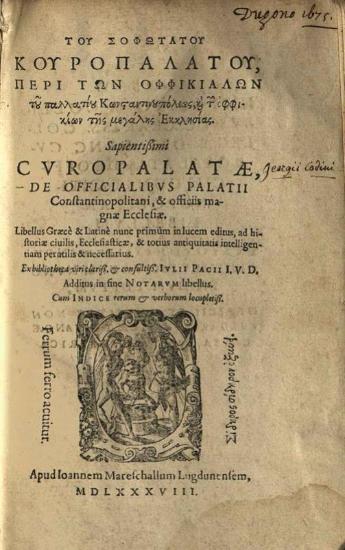 ΤΟΥ ΣΟΦΩΤΑΤΟΥ
ΚΟΥΡΟΠΑΛΑΤΟΥ,
ΠΕΡΙ ΤΩΝ ΟΦΦΙΚΙΑΛΩΝ
τοῦ παλλατίου Κωνσταντινουπόλεως, ϗ τῶν ὀφφι-
κίων τῆς μεγάλης Ἐκκλησίας.
Sapientißimi
CVROPALATÆ, Jeorgii Codini
DE OFFICIALIBVS PALATII
Constantinopolitani, & officiis ma-
gnæ Ecclesiæ.
Libellus Græcè & Latinè nunc primùm in lucem editus, ad hi-
storiæ ciuilis, Ecclesiasticæ, & totius antiquitatis intelligen-
tiam perutilis & necessarius.
Ex bibliotheca viri clariss. & consultiss. IVLII PACII I. V. D.
Additus in fine NOTARVM libellus.
Cum INDICE rerum & verborum locupletiss.
Ferrum ferro acuitur.
Σίδηρος σίδηρον ὀξύνει
Apud Ioannem Mareschallum Lugdunensem,
MDLXXXVIII.